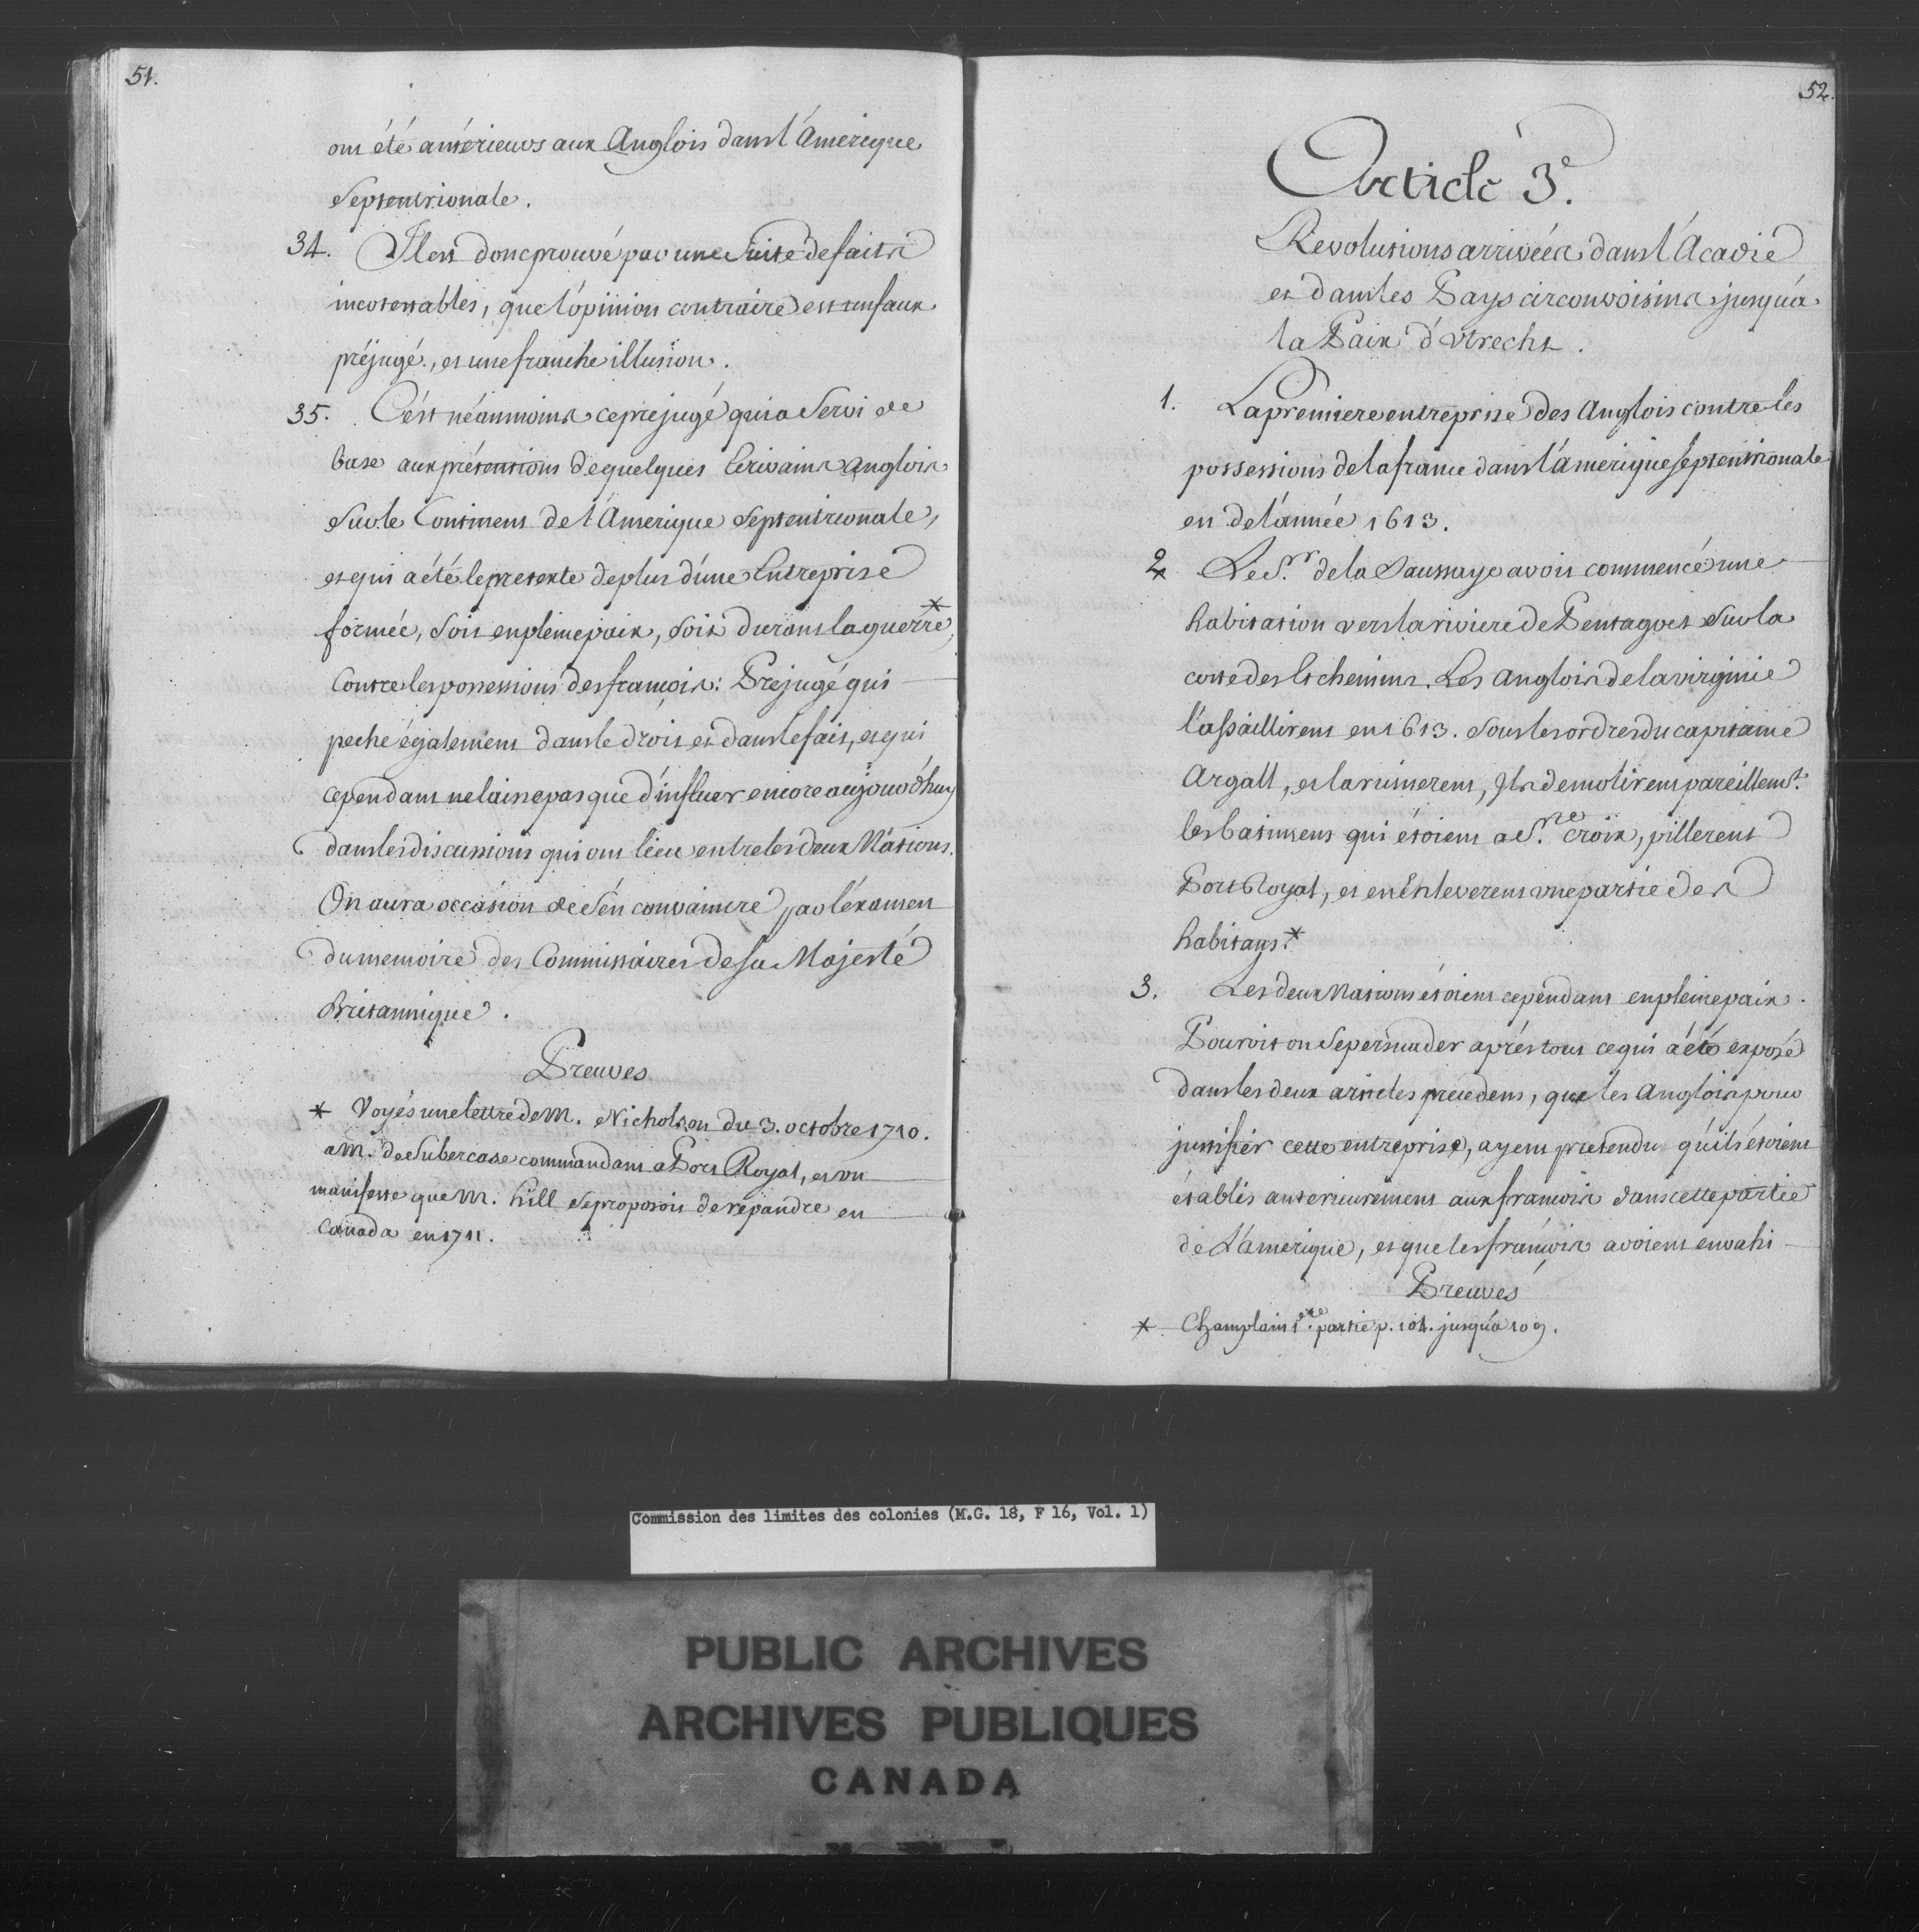 51.
ont été antérieurs aux Anglois dans l'Amerique
Septentrionale.
34. Il est donc prouvé par une Suite de faits
incotestables, que l'opinion contraire est un faux
préjugé, et une franche illusion.
35. C'ést néanmoins ce prejugé qui a Servi de
base aux prétentions de quelques Ecrivains anglois
Sur le Continent de l'Amerique Septentrionale,
et qui a été le pretexte de plus d'une Entreprise
formée, Soit en pleine paix, Soit durant la guerre*,
Contre les possessions des françois: Préjugé qui
peche également dans le droit et dans le fait, et qui
cependant ne laisse pas que d'influer encore aujourd'huy
dans les discussions qui ont lieu entre les deux Nations.
On aura occasion de S'en convaincre par l'éxamen
du memoire des Commissaires de Sa Majesté
Britannique.
Preuves
* Voyés une lettre de M. Nicholson du 3. octobre 1710.
a M. de Subercase commandant a Port Royal, et un
manifeste que M. hill Se proposoit de répandre en
Canada en 1711.
52.
Article 3e.
Revolutions arrivées dans l'Acadie
et dans les Pays circonvoisins jusqu'á
la Paix d'Utrecht.
1. La premiere entreprise des Anglois contre les
possessions de la france dans l'amerique Septentrionale
est de l'année 1613.
2 * Le S.r de la Saussaye avoit commencé une
habitation vers la riviere de Pentagoet Sur la
coste des Etchemins. Les Anglois de la virginie
l'assaillirent en 1613. Sous les ordres du capitaine
Argall, et la ruinerent, Ils demolirent pareillem.t
les batimens qui étoient a S.te Croix, pillerent
Port Royal, et en énleverent une partie des
habitans.*
3. Les deux Nations étoient cependant en pleine paix.
Pouroit on Se persuader aprés tout ce qui a été exposé
dans les deux articles précedens, que les Anglois pour
justifier cette entreprise, ayent prétendu qu'ils étoient
établis anterieurement aux françois dans cette partie
de L'amerique, et que les françois avoient envahi
Preuves
* Champlain 1.ere partie p. 101. jusqu'á 109.
Commission des limites des colonies (M.G. 18, F 16, Vol. 1)
PUBLIC ARCHIVES
ARCHIVES PUBLIQUES
CANADA